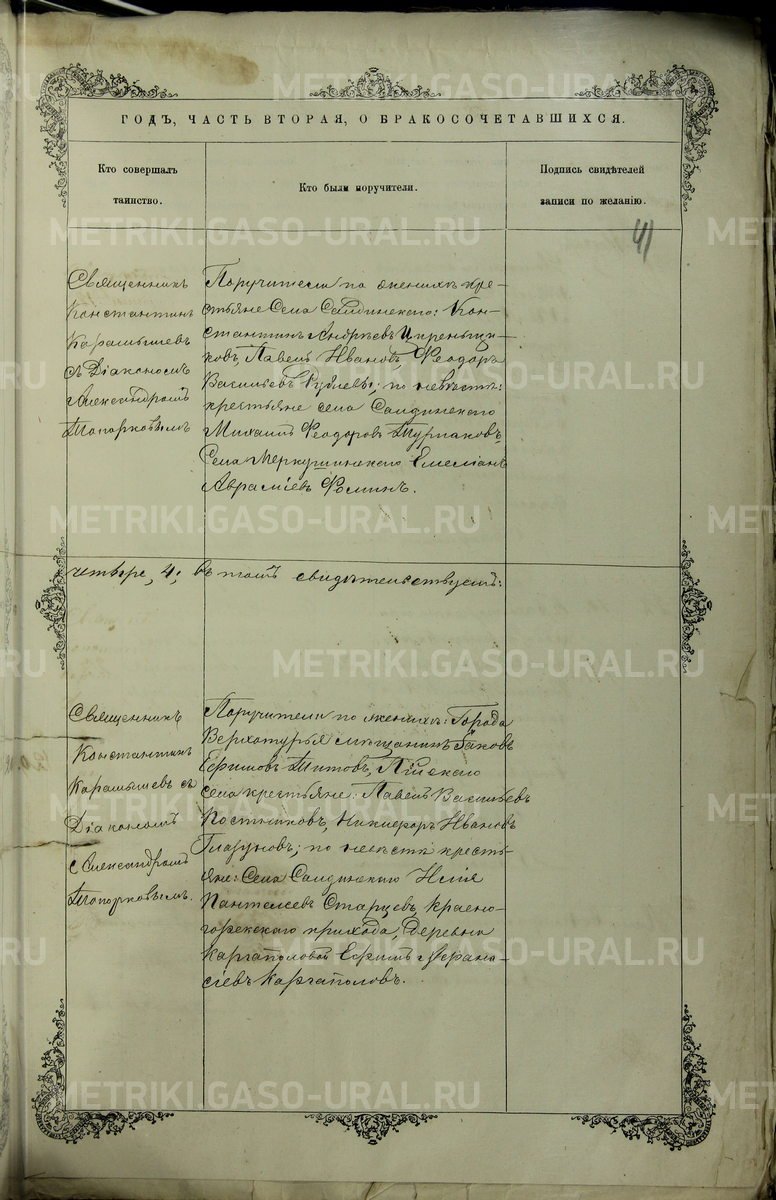 ГОДЪ, ЧАСТЬ ВТОРАЯ, О БРАКОСОЧЕТАВШИХСЯ.
Кто совершалъ
таинство.
Кто были поручители.
Подпись свидѣтелей
записи по желанію.
41
Священникъ
Константинъ
Карамышевъ
съ Діакономъ
Александромъ
Топорковымъ
Поручители по женихѣ кре-
стьяне Села Салдинскаго: Кон-
стантинъ Андреевъ
ковъ, Павелъ Ивановъ, Феодоръ
Васильевъ Рублевы; по невѣстѣ:
крестьяне села Салдинскаго
Михаилъ Феодоровъ Турпаковъ,
Села Меркушинскаго Емеліанъ
Авраміевъ Фоминъ.
четыре, 4; въ томъ свидѣтельствуемъ:
Священникъ
Константинъ
Карамышевъ съ
Діакономъ
Александромъ
Топорковымъ.
Поручители по женихѣ: Города
Верхотурья мѣщанинъ Іаковъ
Ефимовъ Титовъ,
села крестьяне: Павелъ Васильевъ
Постниковъ, Никифоръ Ивановъ
Глазуновъ; по невѣстѣ кресть-
яне: Села Салдинскаго Илія
Пантелеевъ Старцевъ, Красно-
горскаго прихода, Деревни
Каргаполовой Ефимъ Афана-
сіевъ Каргаполовъ.
METRIKI.GASO-URAL.RU